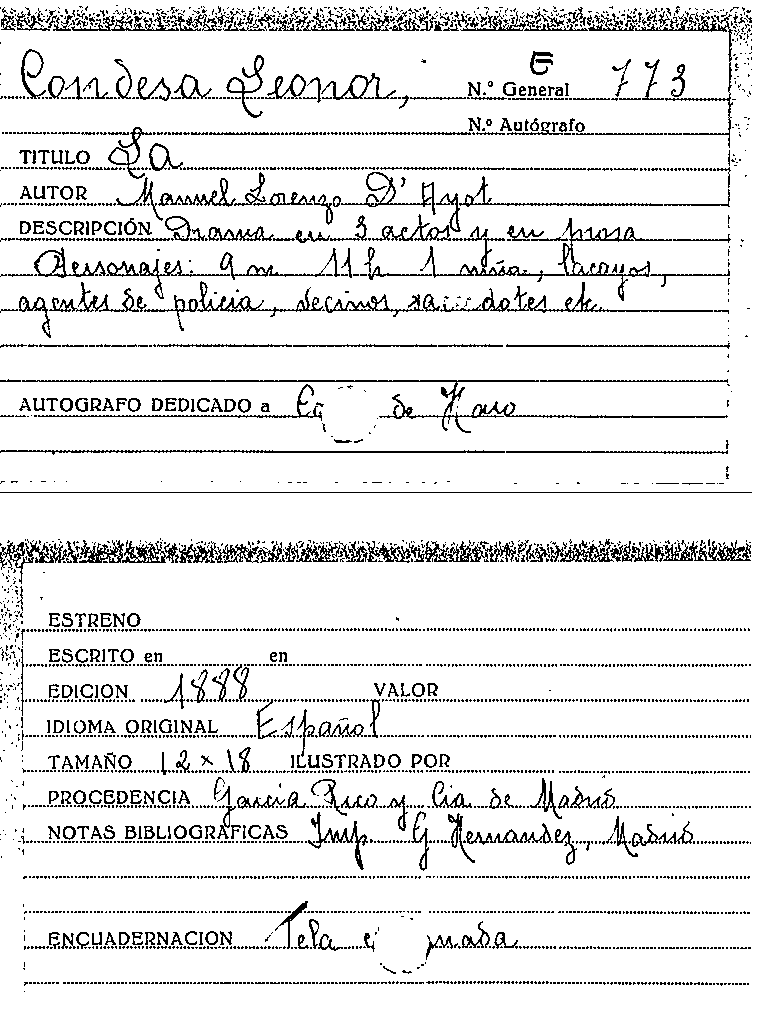 Condesa Leonor, N.º General E 773
N.º Autógrafo
TITULO La
AUTOR Manuel Lorenzo D'Ayot
DESCRIPCIÓN Drama en 3 actos y en prosa
Personajes: 9 m 11 h 1 niña, lacayos,
agentes de policia, vecinos, sa dotes etc.
AUTOGRAFO DEDICADO a de Haro
ESTRENO
ESCRITO en en
EDICION 1888 VALOR
IDIOMA ORIGINAL Español
TAMAÑO 12 x 18 ILUSTRADO POR
PROCEDENCIA García Rico y Cia de Madrid
NOTAS BIBLIOGRAFICAS Imp. G Hernandez, Madrid
ENCUADERNACION Tela